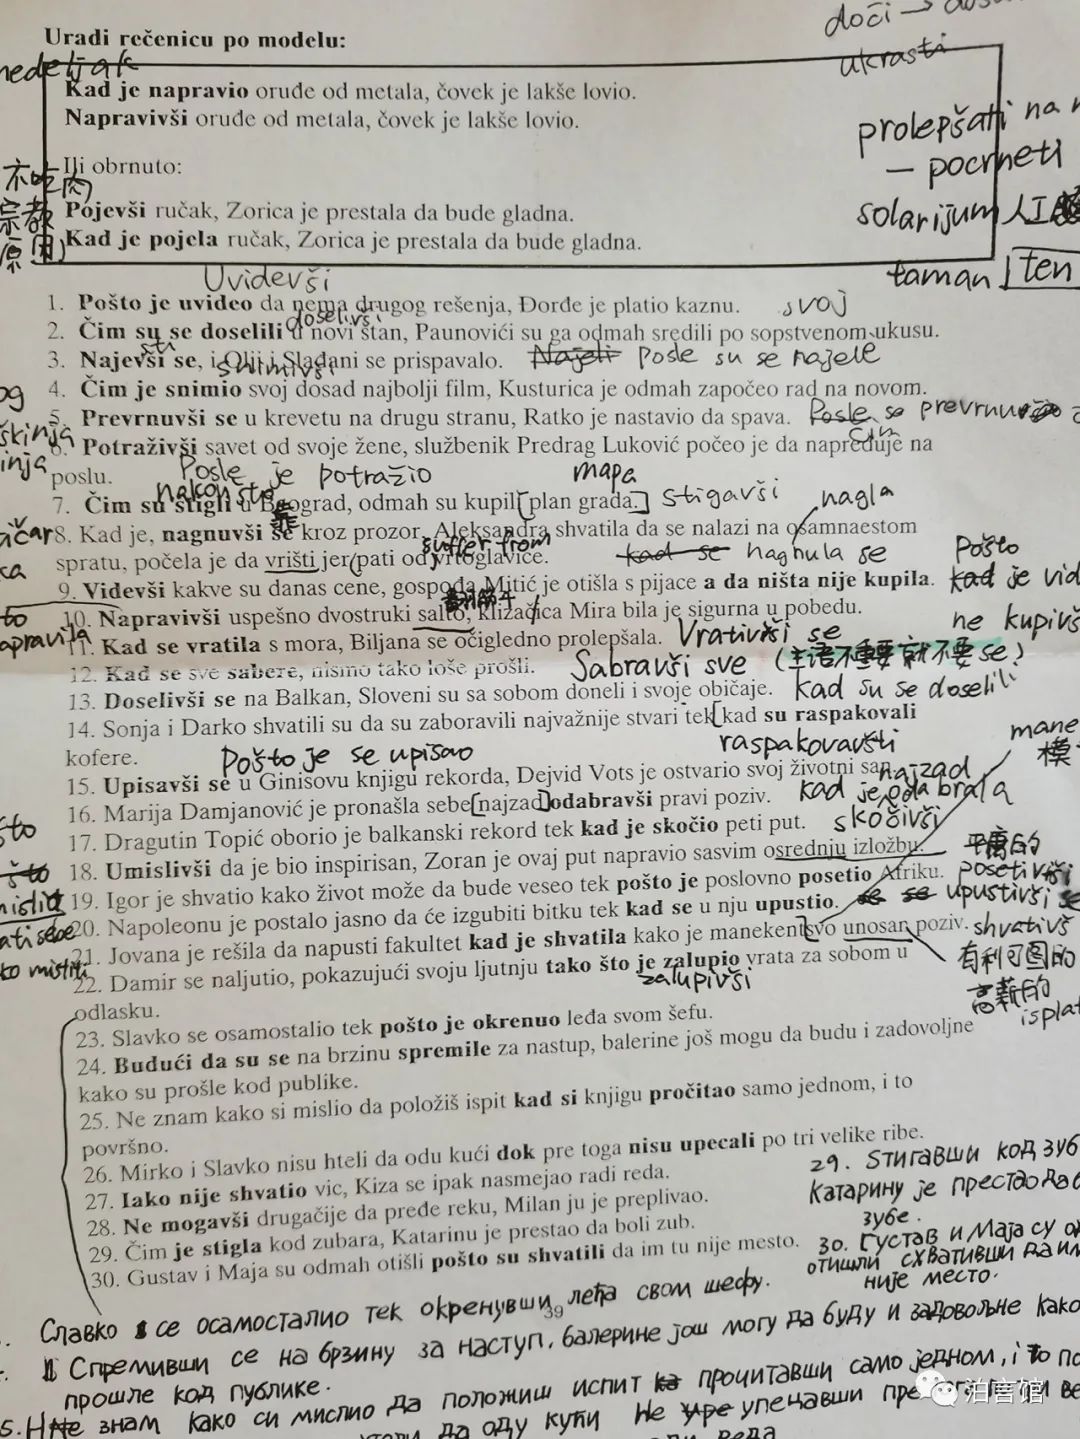 doći →
Uradi rečenicu po modelu:
ukrasti
nedeljak
Kad je napravio oruđe od metala, čovek je lakše lovio.
Napravivši oruđe od metala, čovek je lakše lovio.
prolepšati na
Ili obrnuto:
– pocrneti
不吃肉
Pojevši ručak, Zorica je prestala da bude gladna.
solarijum 人工
宗教
Kad je pojela ručak, Zorica je prestala da bude gladna.
原因
taman ten
Uvidevši
1. Pošto je uvideo da nema drugog rešenja, Đorđe je platio kaznu. svoj
doselivši
2. Čim su se doselili u novi stan, Paunovići su ga odmah sredili po sopstvenom ukusu.
3. Najevši se, i Olji i Slađani se prispavalo. Najeli Posle su se najele
snimivši
4. Čim je snimio svoj dosad najbolji film, Kusturica je odmah započeo rad na novom.
5. Prevrnuvši se u krevetu na drugu stranu, Ratko je nastavio da spava. Posle se prevrnuo
čim
6. Potraživši savet od svoje žene, službenik Predrag Luković počeo je da napreduje na
poslu. Posle je potražio mapa
nakon što
7. Čim su stigli u Beograd, odmah su kupili [plan grada.] stigavši nagla
8. Kad je, nagnuvši se kroz prozor, Aleksandra shvatila da se nalazi na osamnaestom
suffer from
spratu, počela je da vrišti jer pati od vrtoglavice. kad se nagnula se Pošto
9. Videvši kakve su danas cene, gospođa Mitić je otišla s pijace a da ništa nije kupila. kad je vid
翻筋斗
10. Napravivši uspešno dvostruki salto, klizačica Mira bila je sigurna u pobedu. ne kupivš
11. Kad se vratila s mora, Biljana se očigledno prolepšala. Vrativši se
12. Kad se sve sabere, nismo tako loše prošli. Sabravši sve (主语不重要就不要se!)
13. Doselivši se na Balkan, Sloveni su sa sobom doneli i svoje običaje. kad su se doselili
14. Sonja i Darko shvatili su da su zaboravili najvažnije stvari tek [kad su raspakovali
kofere. Pošto je se upisao raspakovavši
15. Upisavši se u Ginisovu knjigu rekorda, Dejvid Vots je ostvario svoj životni san.
najzad
16. Marija Damjanović je pronašla sebe [najzad] odabravši pravi poziv. kad je odabrala
17. Dragutin Topić oborio je balkanski rekord tek kad je skočio peti put. skočivši
18. Umislivši da je bio inspirisan, Zoran je ovaj put napravio sasvim osrednju izložbu. 平庸的
19. Igor je shvatio kako život može da bude veseo tek pošto je poslovno posetio Afriku. posetivši
20. Napoleonu je postalo jasno da će izgubiti bitku tek kad se u nju upustio. se se upustivši se
21. Jovana je rešila da napusti fakultet kad je shvatila kako je manekenstvo unosan poziv. shvativš
22. Damir se naljutio, pokazujući svoju ljutnju tako što je zalupio vrata za sobom u
有利可图的
zalupivši
odlasku.
高薪的
isplat
23. Slavko se osamostalio tek pošto je okrenuo leđa svom šefu.
24. Budući da su se na brzinu spremile za nastup, balerine još mogu da budu i zadovoljne
kako su prošle kod publike.
25. Ne znam kako si mislio da položiš ispit kad si knjigu pročitao samo jednom, i to
površno.
26. Mirko i Slavko nisu hteli da odu kući dok pre toga nisu upecali po tri velike ribe.
27. Iako nije shvatio vic, Kiza se ipak nasmejao radi reda.
28. Ne mogavši drugačije da pređe reku, Milan ju je preplivao.
29. Čim je stigla kod zubara, Katarinu je prestao da boli zub.
30. Gustav i Maja su odmah otišli pošto su shvatili da im tu nije mesto.
29. Стигавши код зуб
Катарину је престао да б
зубе.
30. Густав и Маја су од
отишли схвативши да им
није место.
39
Славко се осамосталио тек окренувши леђа свом шефу.
Спремивши се на брзину за наступ, балерине још могу да буду и задовољне како
прошле код публике.
5. Не знам како си мислио да положиш испит прочитавши само једном, i то по
да оду кући не упецавши пре
泊言馆